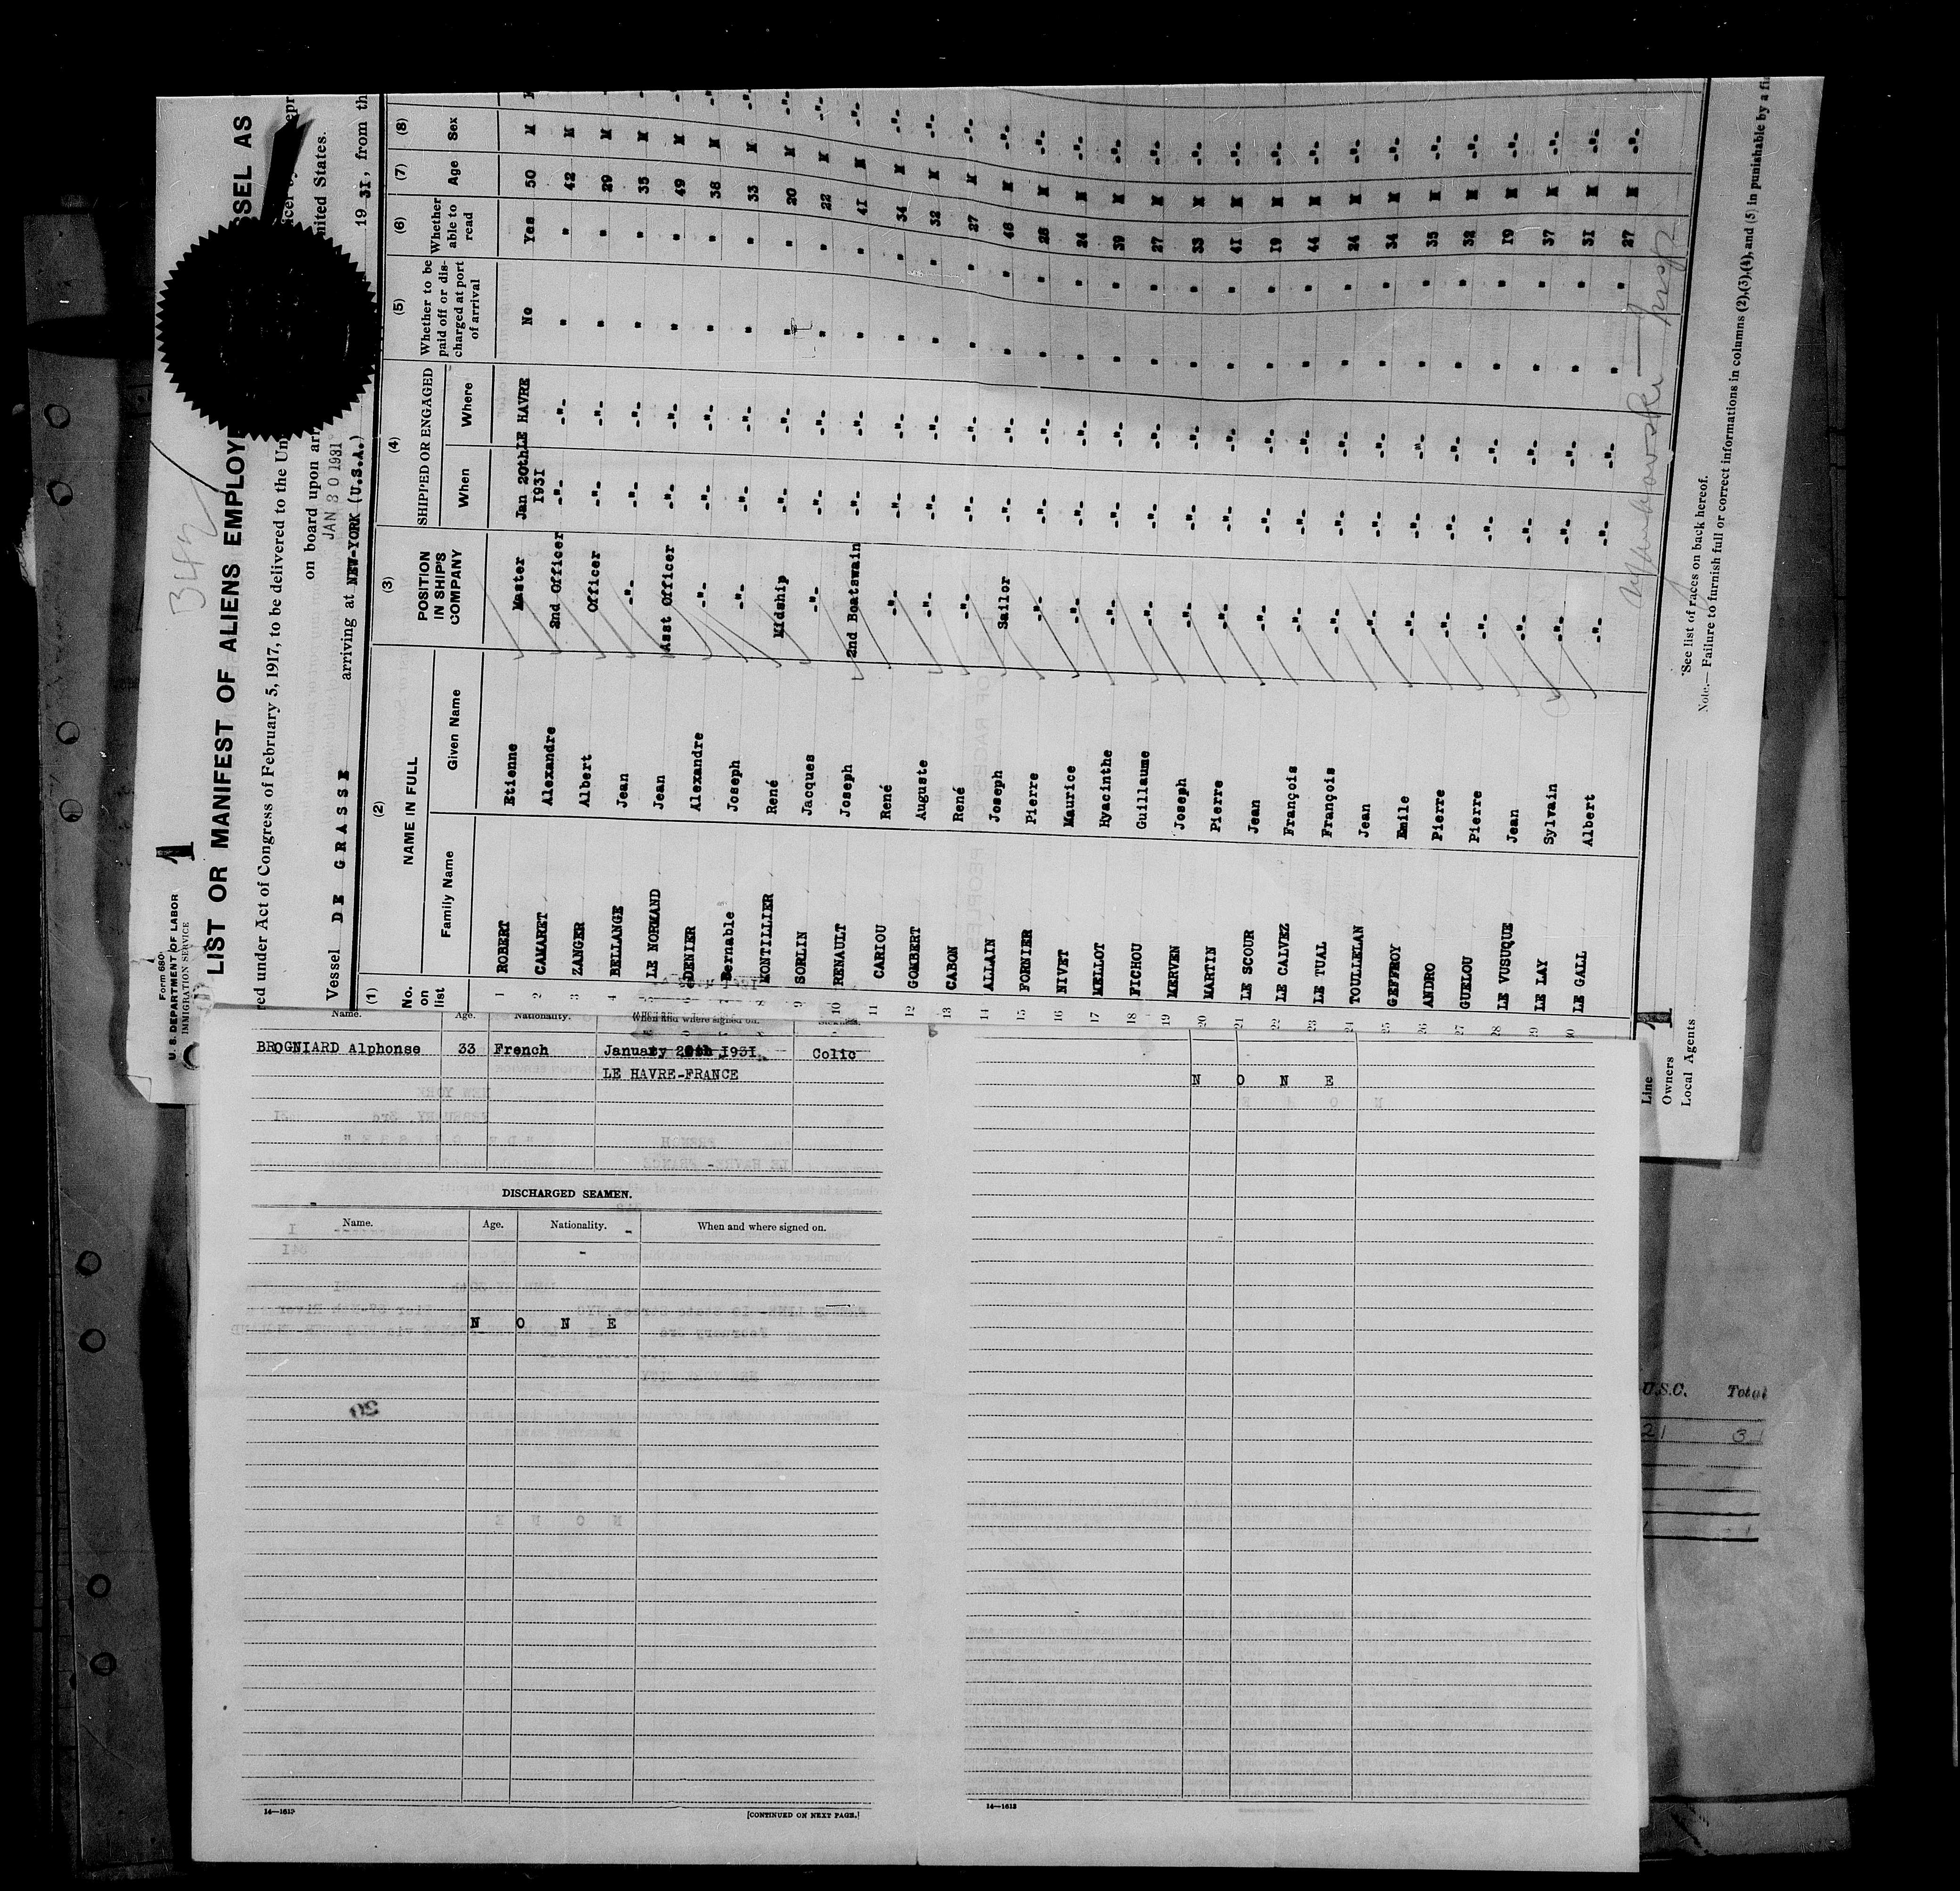 Form 680
U. S. DEPARTMENT OF LABOR
IMMIGRATION SERVICE
1
342
LIST OR MANIFEST OF ALIENS EMPLOY SSEL AS
red under Act of Congress of February 5, 1917, to be delivered to the Un nited States.
on board upon arri
JAN 30 1931
Vessel DE GRASSE arriving at NEW-YORK (U.S.A.) 1931, from th
(1) (2) (3) (4) (5) (6) (7) (8)
No. on list NAME IN FULL POSITION IN SHIP'S COMPANY SHIPPED OR ENGAGED Whether to be paid off or discharged at port of arrival Whether able to read Age Sex
Family Name Given Name When Where
1 ROBERT Etienne Master Jan 20th 1931 LE HAVRE No Yes 50 M
2 CAMARET Alexandre 2nd Officer -"- -"- " " 42 M
3 ZANGER Albert Officer -"- -"- " " 29 M
4 BELLANGE Jean -"- -"- -"- " " 35 M
LE NORMAND Jean Asst Officer -"- -"- " " 49 M
6 DENIER Alexandre -"- -"- -"- " " 38 M
7 Bernable Joseph -"- -"- -"- " " 33 M
8 MONTILLIER René Midship -"- -"- " " 20 M
9 SORLIN Jacques -"- -"- -"- " " 22 M
10 RENAULT Joseph 2nd Boatswain -"- -"- " " 41 M
11 CARIOU René -"- -"- -"- " " 34 M
12 GOMBERT Auguste -"- -"- -"- " " 32 M
13 CABON René -"- -"- -"- " " 27 M
14 ALLAIN Joseph Sailor -"- -"- " " 46 M
15 FORNIER Pierre -"- -"- -"- " " 28 M
16 NIVET Maurice -"- -"- -"- " " 24 M
17 MELLOT Hyacinthe -"- -"- -"- " " 39 M
18 PICHOU Guillaume -"- -"- -"- " " 27 M
19 MERVEN Joseph -"- -"- -"- " " 33 M
20 MARTIN Pierre -"- -"- -"- " " 41 M
21 LE SCOUR Jean -"- -"- -"- " " 19 M
22 LE CALVEZ François -"- -"- -"- " " 44 M
23 LE TUAL François -"- -"- -"- " " 24 M
24 TOULLELAN Jean -"- -"- -"- " " 34 M
25 GEFFROY Emile -"- -"- -"- " " 35 M
26 ANDRO Pierre -"- -"- -"- " " 32 M
27 GUELOU Pierre -"- -"- -"- " " 19 M
28 LE VUSUQUE Jean -"- -"- -"- " " 37 M
29 LE LAY Sylvain -"- -"- -"- " " 31 M
30 LE GALL Albert -"- -"- -"- " " 27 M
Line
Owners
Local Agents
1
See list of races on back hereof.
Note.— Failure to furnish full or correct informations in columns (2),(3),(4), and (5) in punishable by a fi
Name. Age. Nationality. When and where signed on.
BROGNIARD Alphonse 33 French January 20th 1931 Colic
LE HAVRE-FRANCE
DISCHARGED SEAMEN.
Name. Age. Nationality. When and where signed on.
N O N E
14—1613
[CONTINUED ON NEXT PAGE.]
N O N E
14—1613
U.S.C. Total
21 3